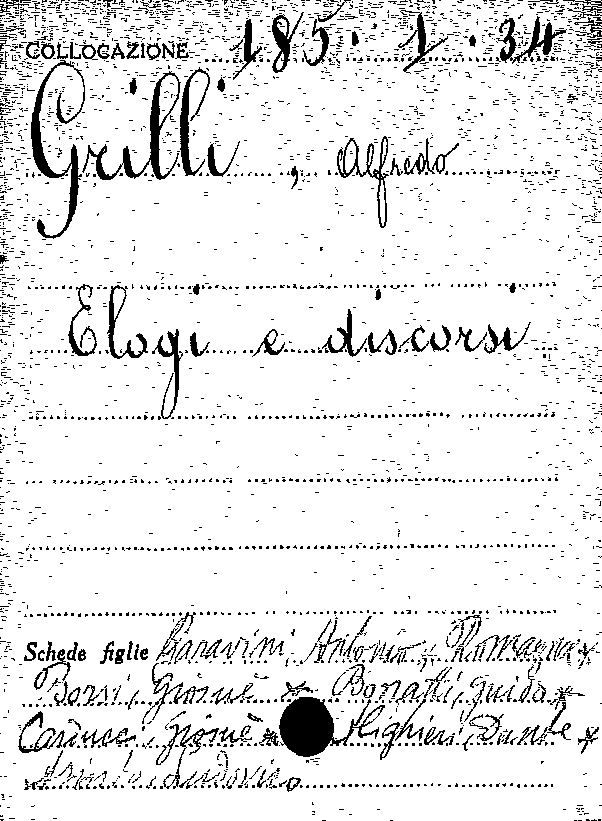 COLLOCAZIONE 185.1.34
Grilli, Alfredo
Elogi e discorsi
Schede figlie Garavini, Antonio * Romagna *
Borsi, Giosuè * Bonatti, Guido *
Carducci, Giosuè * Alighieri, Dante *
Ariosto, Ludovico